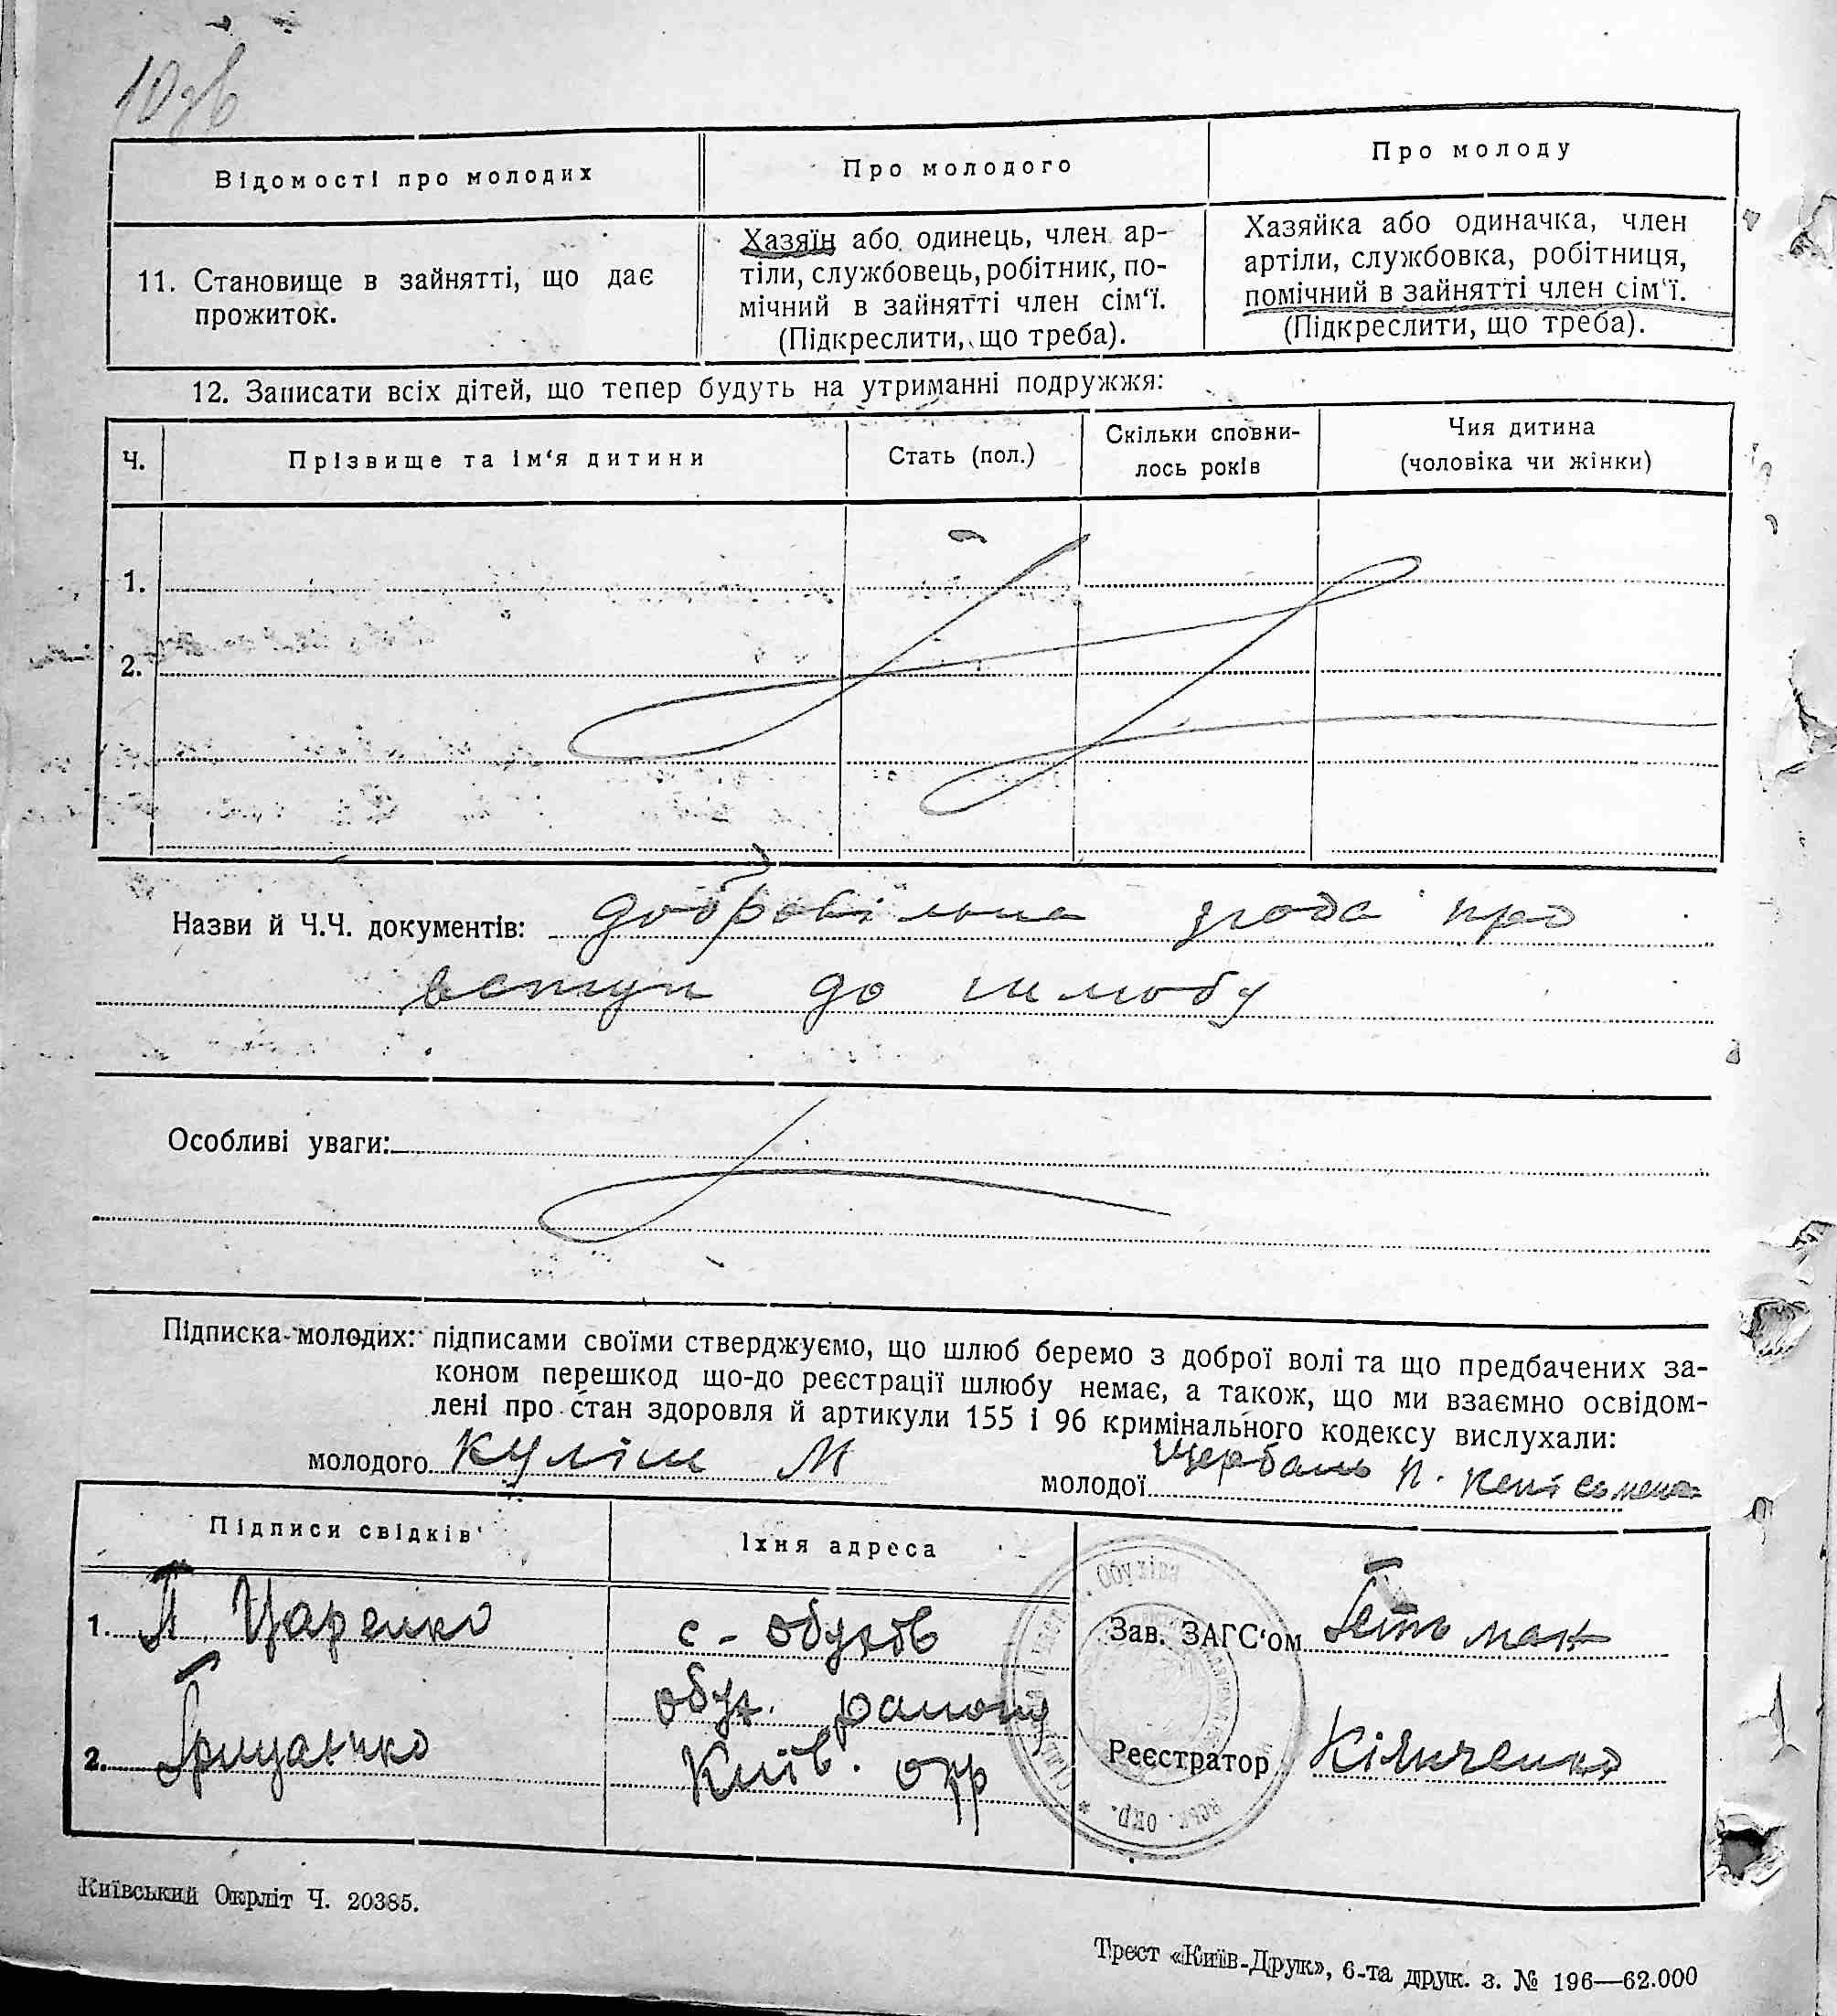 10зв
Відомості про молодих
Про молодого
Про молоду
11. Становище в зайнятті, що дає
прожиток.
Хазяїн або одинець, член ар-
тіли, службовець, робітник, по-
мічний в зайнятті член сім'ї.
(Підкреслити, що треба).
Хазяйка або одиначка, член
артіли, службовка, робітниця,
помічний в зайнятті член сім'ї.
(Підкреслити, що треба).
12. Записати всіх дітей, що тепер будуть на утриманні подружжя:
Ч.
Прізвище та ім'я дитини
Стать (пол.)
Скільки сповни-
лось років
Чия дитина
(чоловіка чи жінки)
1.
2.
Назви й Ч.Ч. документів: добровільна згода про
вступ до шлюбу
Особливі уваги:
Підписка молодих: підписами своїми стверджуємо, що шлюб беремо з доброї волі та що предбачених за-
коном перешкод що-до реєстрації шлюбу немає, а також, що ми взаємно освідом-
лені про стан здоровля й артикули 155 і 96 кримінального кодексу вислухали:
молодого Куліш М
молодої Щербань П.
Підписи свідків
Їхня адреса
1. П. Царенко
с-Обухів
Зав. ЗАГС'ом Гетьман
обух. району
2. Грищенко
Київ. окр
Реєстратор
Обухівс
окр.
Київський Окрліт Ч. 20385.
Трест «Київ-Друк», 6-та друк. з. № 196—62.000